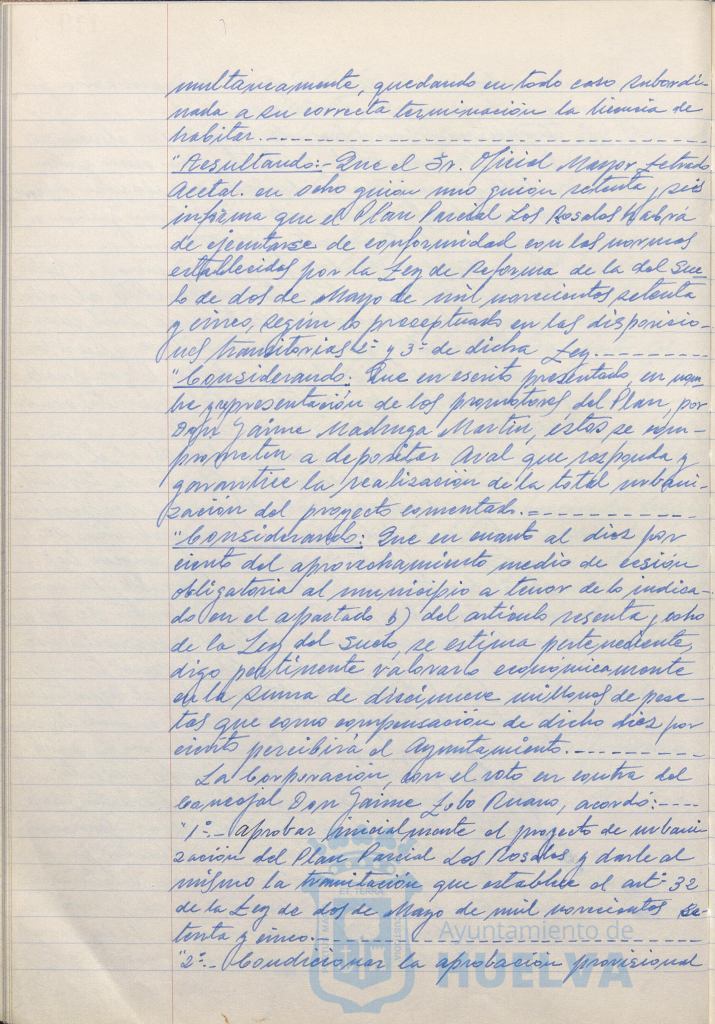 multáneamente, quedando en todo caso subordi-
nada a su correcta terminación la licencia de
habitar.-----------
"Resultando:- Que el Sr. Oficial Mayor Letrado
Acctal. en ocho guión uno guión setenta y seis
informa que el Plan Parcial Los Rosales habrá
de ejecutarse de conformidad con las normas
establecidas por la Ley de Reforma de la del Sue-
lo de dos de Mayo de mil novecientos setenta
y cinco, según lo preseptuado en las disposicio-
nes transitorias 2ª y 3ª de dicha Ley.---------
"Considerando: Que en escrito presentado, en nom-
bre y representación de los promotores del Plan, por
Don Jaime Madruga Martín, éstos se com-
prometen a depositar Aval que responda y
garantice la realización de la total urbani-
zación del proyecto comentado.----------
"Considerando: Que en cuanto al diez por
ciento del aprovechamiento medio de cesión
obligatoria al municipio a tenor de lo indica-
do en el apartado b) del artículo sesenta y ocho
de la Ley del Suelo, se estima pertenediente,
digo pertinente valorarlo económicamente
en la suma de diecinueve millones de pese-
tas que como compensación de dicho diez por
ciento percibirá el Ayuntamiento.----------
La Corporación, con el voto en contra del
Concejal Don Jaime Lobo Ruano, acordó:----
"1º.- Aprobar inicialmente el proyecto de urbani-
zación del Plan Parcial Los Rosales y darle al
mismo la tramitación que establece el artº 32
de la Ley de dos de Mayo de mil novecientos se-
tenta y cinco.----------
"2º.- Condicionar la aprobación provisional
Ayuntamiento de
HUELVA